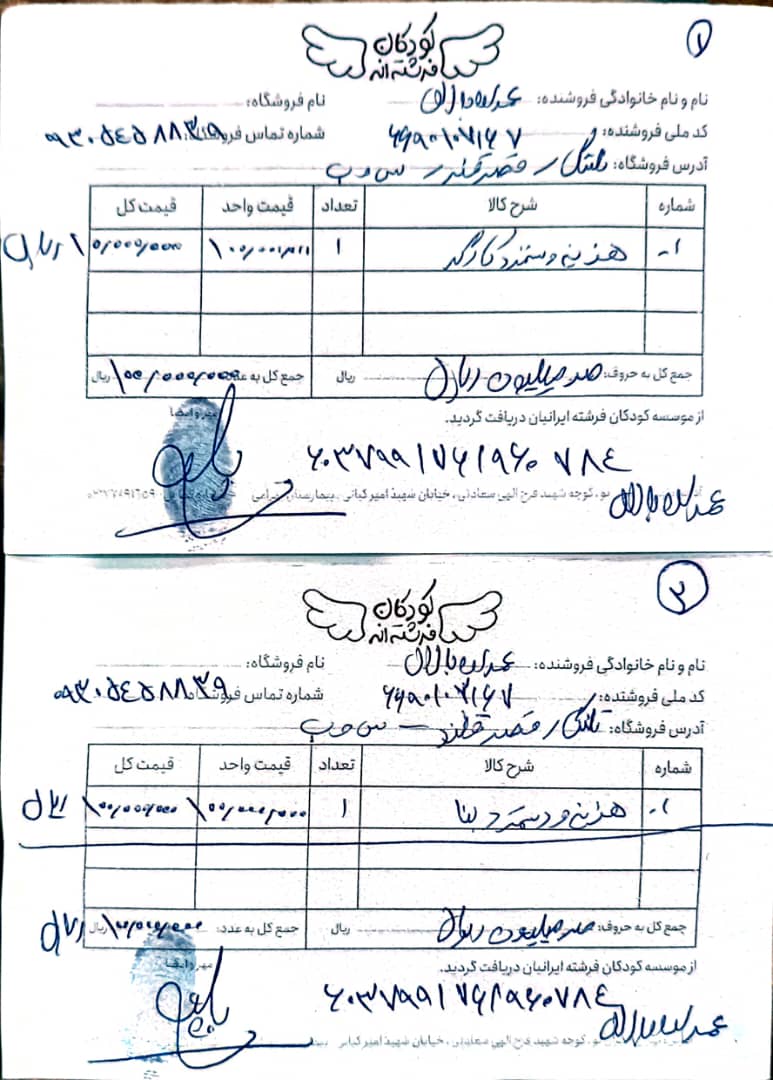 ۱
کودکان
فرشته‌اند
نام و نام خانوادگی فروشنده: نام فروشگاه:
کد ملی فروشنده: شماره تماس فروشگاه: ۰۹۳۰۵۴۵۸۸۳۹
آدرس فروشگاه: قصرقند
شماره شرح کالا تعداد قیمت واحد قیمت کل
۱- هزینه دستمزد کارگر ۱ ریال
جمع کل به حروف: صد میلیون ریال ریال جمع کل به عدد: ۱۰۰/۰۰۰/۰۰۰ ریال
از موسسه کودکان فرشته ایرانیان دریافت گردید.
مهر و امضا
۶۰۳۷۹۹۱۷۶۱۹۶۰۷۸۴
کوچه شهید فرج الهی سعادتی، خیابان شهید امیر کیانی، بیمارستان
۳
کودکان
فرشته‌اند
نام و نام خانوادگی فروشنده: نام فروشگاه:
کد ملی فروشنده: شماره تماس فروشگاه: ۰۹۳۰۵۴۵۸۸۳۹
آدرس فروشگاه: قصرقند
شماره شرح کالا تعداد قیمت واحد قیمت کل
۱- هزینه دستمزد بنا ۱ ۱۰۰/۰۰۰/۰۰۰ ۱۰۰/۰۰۰/۰۰۰ ریال
جمع کل به حروف: صد میلیون ریال ریال جمع کل به عدد: ۱۰۰/۰۰۰/۰۰۰ ریال
از موسسه کودکان فرشته ایرانیان دریافت گردید.
مهر و امضا
۶۰۳۷۹۹۱۷۶۱۹۶۰۷۸۴
کوچه شهید فرج الهی سعادتی، خیابان شهید امیر کیانی،